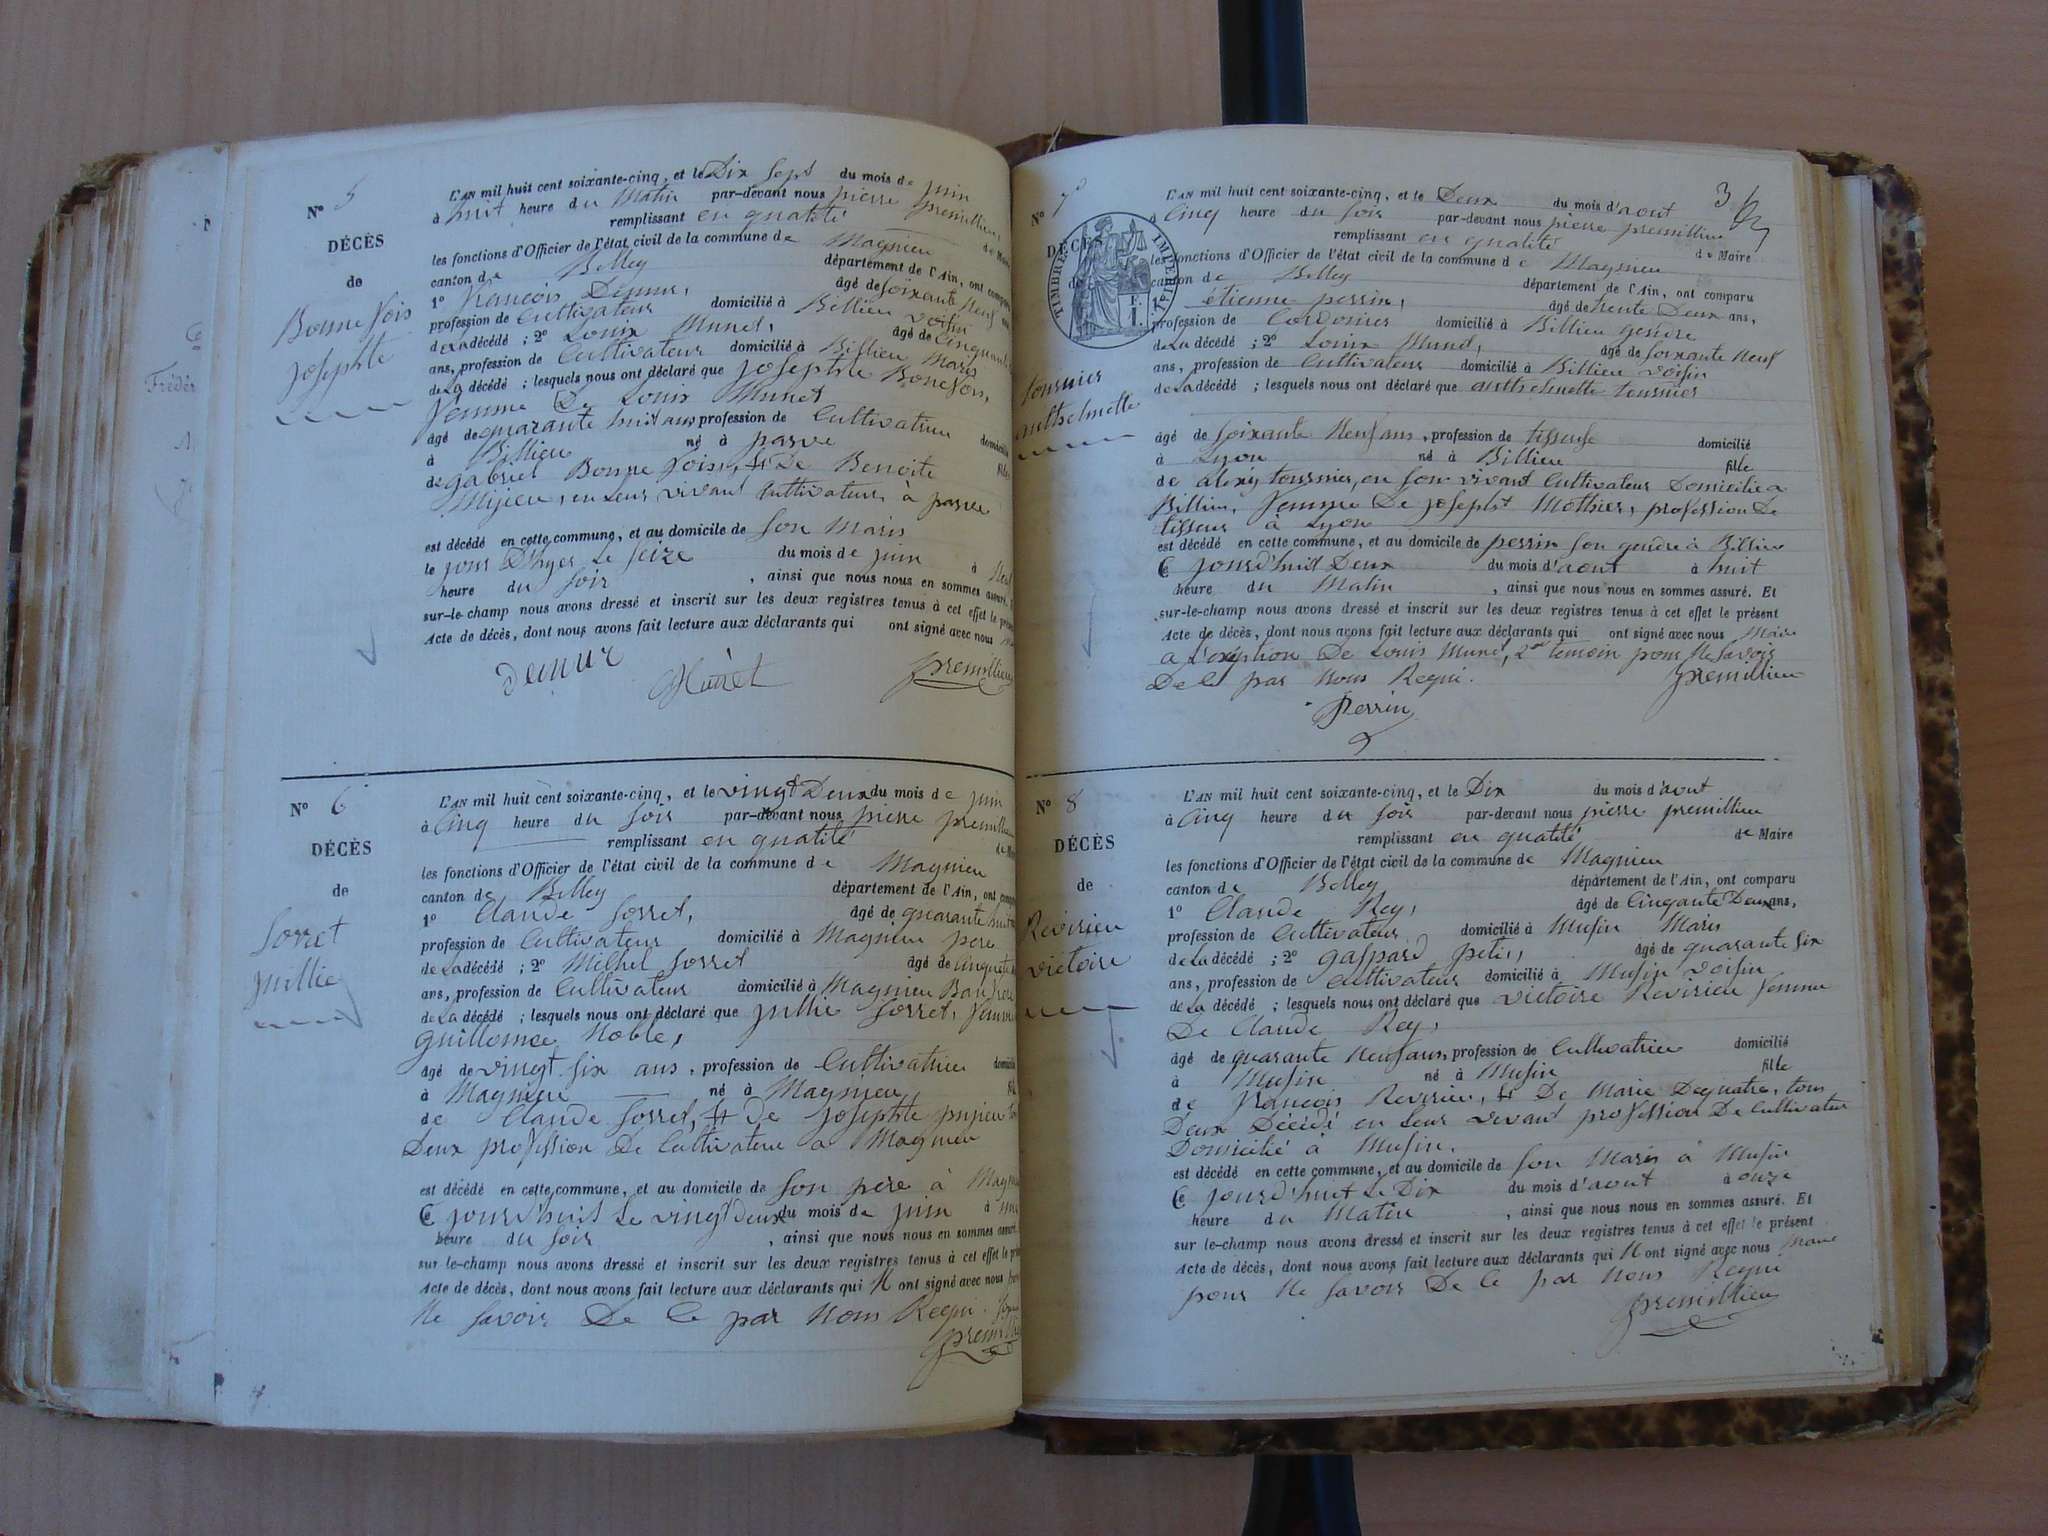 N° 5
DÉCÈS
de
Bonne fois
josephte
L'AN mil huit cent soixante-cinq, et le Dix Sept du mois de juin
à huit heure du Matin par-devant nous pierre premillieu
remplissant en qualité de Maire
les fonctions d'Officier de l'état civil de la commune de Magnieu
canton de Belley département de l'Ain, ont comparu
1° francois Demur, âgé de soixante Neuf ans
profession de Cultivateur domicilié à Billieu voisin
de La décédé ; 2° Louis Munet, âgé de Cinquante
ans, profession de Cultivateur domicilié à Billieu Maris
de La décédé ; lesquels nous ont déclaré que josephte Bonefois,
femme De Louis Munet
âgé de quarante huit ans profession de Cultivatrice domicilié
à Billieu né à parve fille
de gabriel Bonne fois, et De Benoite
Mijieu, en Leur vivant Cultivateur, à parve
est décédé en cette commune, et au domicile de Son Maris
le jour D'hyer Le Seize du mois de juin à Neuf
heure du Soir , ainsi que nous nous en sommes assuré.
sur-le-champ nous avons dressé et inscrit sur les deux registres tenus à cet effet le présent
Acte de décès, dont nous avons fait lecture aux déclarants qui ont signé avec nous
Demur Munet premillieu
N° 6
DÉCÈS
de
Sorret
jullie
L'AN mil huit cent soixante-cinq, et le vingt Deux du mois de juin
à Cinq heure du Soir par-devant nous pierre premillieu
remplissant en qualité de Maire
les fonctions d'Officier de l'état civil de la commune de Magnieu
canton de Belley département de l'Ain, ont comparu
1° Claude Sorret, âgé de quarante huit
profession de Cultivateur domicilié à Magnieu pere
de La décédé ; 2° Michel Sorret âgé de cinquante
ans, profession de Cultivateur domicilié à Magnieu Beau frere
de La décédé ; lesquels nous ont déclaré que jullie Sorret, femme
guillaume Noble,
âgé de vingt Six ans, profession de Cultivatrice domicilié
à Magnieu né à Magnieu fille
de Claude Sorret, et de josephte pujieu
Deux profession De Cultivateur a Magnieu
est décédé en cette commune, et au domicile de Son pere à Magnieu
Ce jourd'huit Le vingt Deux du mois de juin à une
heure du Soir , ainsi que nous nous en sommes assuré.
sur le-champ nous avons dressé et inscrit sur les deux registres tenus à cet effet le présent
Acte de décès, dont nous avons fait lecture aux déclarants qui N ont signé avec nous pour
Ne Savoir De Ce par Nous Requi.
premillieu
3
N° 7
DÉCÈS
de
TIMBRE IMPERIAL
tournier
anthelmette
L'AN mil huit cent soixante-cinq, et le Deux du mois d'aout
à Cinq heure du Soir par-devant nous pierre premillieu
remplissant en qualité de Maire
les fonctions d'Officier de l'état civil de la commune de Magnieu
canton de Belley département de l'Ain, ont comparu
1° étienne perrin, âgé de trente Deux ans,
profession de Cordonier domicilié à Billieu gendre
de La décédé ; 2° Louis Munet, âgé de Soixante Neuf
ans, profession de Cultivateur domicilié à Billieu voisin
de La décédé ; lesquels nous ont déclaré que anthelmette tournier
âgé de Soixante Neuf ans, profession de tisseuse domicilié
à Lyon né à Billieu fille
de alexis tournier, en Son vivant Cultivateur Domicilié a
Billieu, femme De josepht Mothier, profession De
tisseur à Lyon
est décédé en cette commune, et au domicile de perrin Son gendre à Billieu
Ce jourd'huit Deux du mois d'aout à huit
heure du Matin , ainsi que nous nous en sommes assuré. Et
sur-le-champ nous avons dressé et inscrit sur les deux registres tenus à cet effet le présent
Acte de décès, dont nous avons fait lecture aux déclarants qui ont signé avec nous Maire
a L'exeption De Louis Munet, 2e temoin pour Ne Savoir
De Ce par Nous Requi. premillieu
Perrin
N° 8
DÉCÈS
de
Revirieu
victoire
L'AN mil huit cent soixante-cinq, et le Dix du mois d'aout
à Cinq heure du Soir par-devant nous pierre premillieu
remplissant en qualité de Maire
les fonctions d'Officier de l'état civil de la commune de Magnieu
canton de Belley département de l'Ain, ont comparu
1° Claude Rey, âgé de Cinqante Deux ans,
profession de Cultivateur domicilié à Musin Maris
de La décédé ; 2° gaspard petit, âgé de quarante Six
ans, profession de Cultivateur domicilié à Musin voisin
de La décédé ; lesquels nous ont déclaré que victoire Revirieu femme
De Claude Rey,
âgé de quarante Neuf ans, profession de Cultivatrice domicilié
à Musin né à Musin fille
de francois Revirieu, et De Marie Dequatre, tous
Deux Décédé en Leur vivant profession De Cultivateur
Domicilié à Musin.
est décédé en cette commune, et au domicile de Son Maris à Musin
Ce jourd'huit Le Dix du mois d'aout à onze
heure du Matin , ainsi que nous nous en sommes assuré. Et
sur le-champ nous avons dressé et inscrit sur les deux registres tenus à cet effet le présent
Acte de décès, dont nous avons fait lecture aux déclarants qui N ont signé avec nous Maire
pour Ne Savoir De Ce par Nous Requi
premillieu